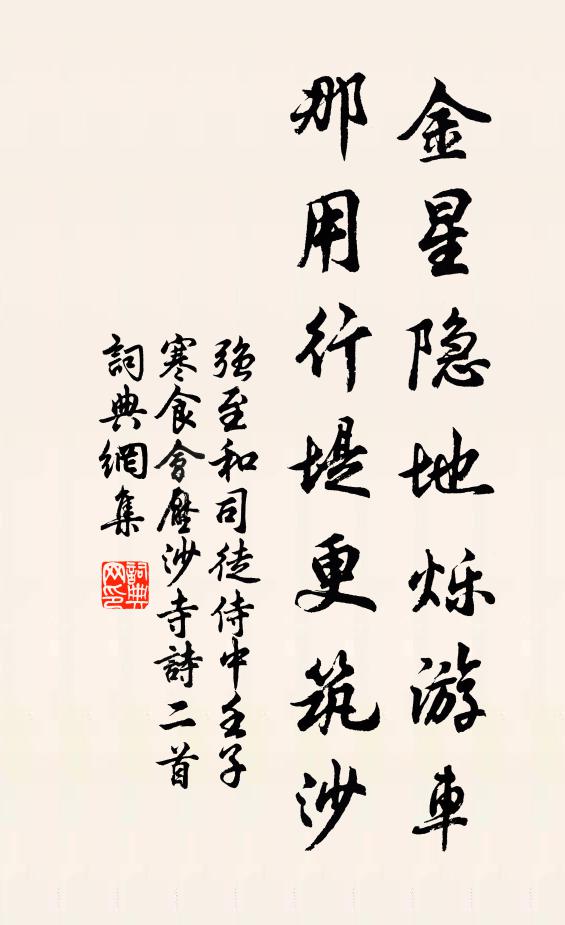 金星隐地烁游車
那用行堤更筑沙
強至和司徒侍中壬子
寒食會壓沙寺詩二首
詞典網集
詞典
网印